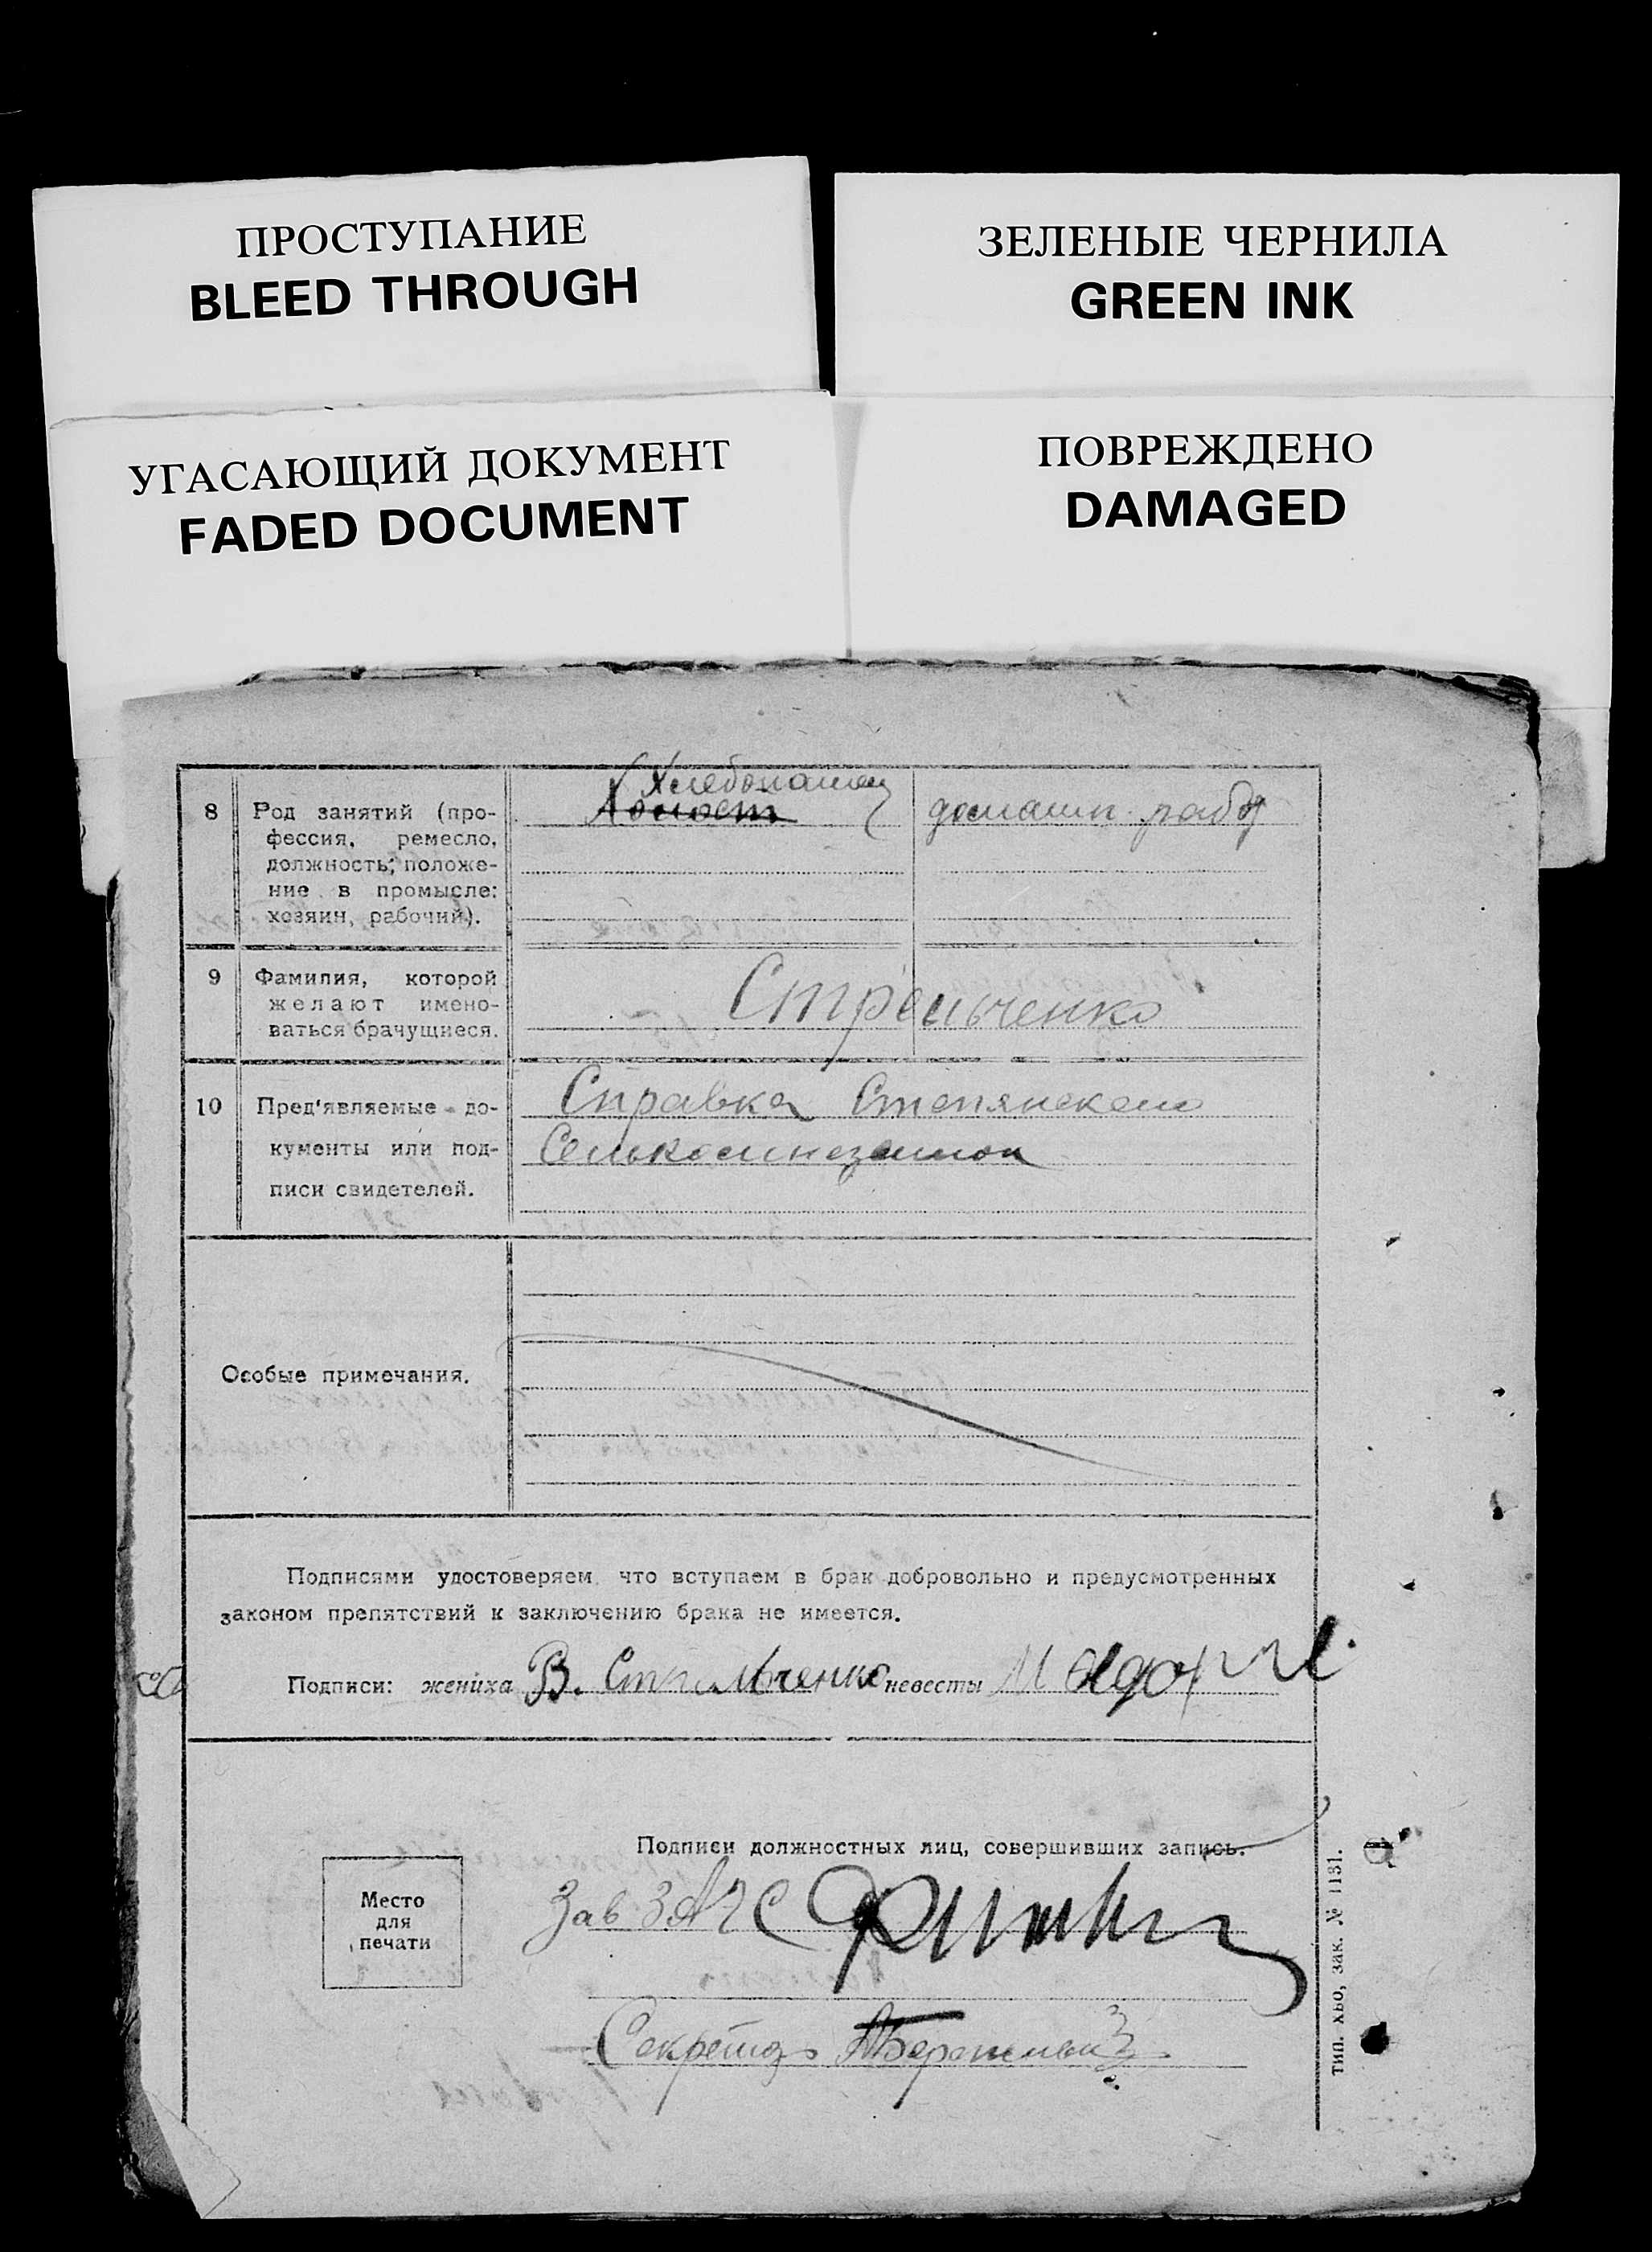 ПРОСТУПАНИЕ
BLEED THROUGH
ЗЕЛЕНЫЕ ЧЕРНИЛА
GREEN INK
УГАСАЮЩИЙ ДОКУМЕНТ
FADED DOCUMENT
ПОВРЕЖДЕНО
DAMAGED
8
Род занятий (про-
фессия, ремесло,
должность; положе-
ние в промысле:
хозяин, рабочий).
Хлебопашец
Холост
домашн. раб
9
Фамилия, которой
желают имено-
ваться брачущиеся.
Стрельченко
10
Пред'являемые до-
кументы или под-
писи свидетелей.
Справка
Особые примечания.
Подписями удостоверяем, что вступаем в брак добровольно и предусмотренных
законом препятствий к заключению брака не имеется.
Подписи: жениха В. Стрильченко невесты
Подписи должностных лиц, совершивших запись.
Место
для
печати
Зав ЗАГС
Секретарь
тип. хьо, зак. № 1131.